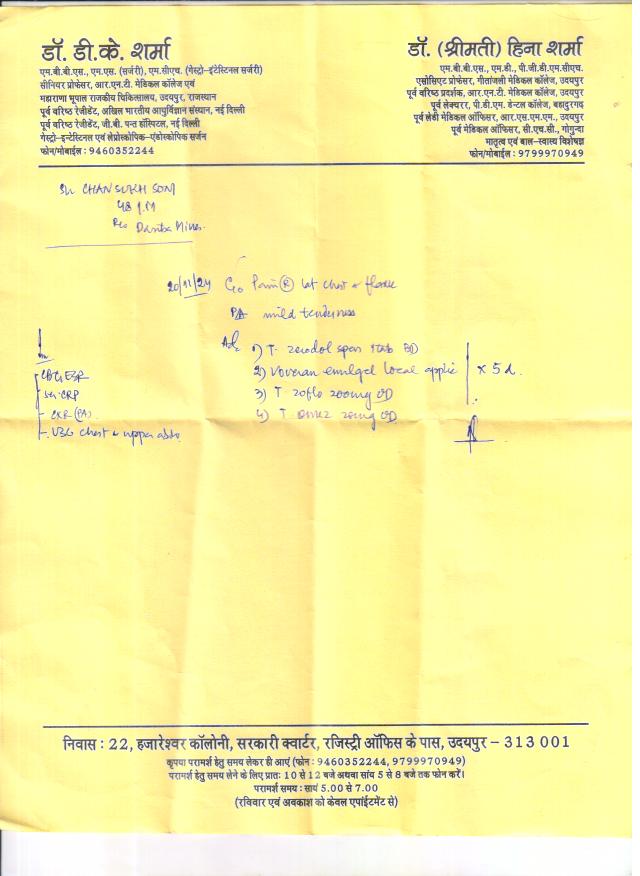 डॉ. डी.के. शर्मा
एम.बी.बी.एस., एम.एस. (सर्जरी), एम.सीएच. (गेस्ट्रो-इंटेस्टिनल सर्जरी)
सीनियर प्रोफेसर, आर.एन.टी. मेडिकल कॉलेज एवं
महाराणा भूपाल राजकीय चिकित्सालय, उदयपुर, राजस्थान
पूर्व वरिष्ठ रेजीडेंट, अखिल भारतीय आयुर्विज्ञान संस्थान, नई दिल्ली
पूर्व वरिष्ठ रेजीडेंट, जी.बी. पन्त हॉस्पिटल, नई दिल्ली
गेस्ट्रो-इन्टेस्टिनल एवं लेप्रोस्कोपिक-एंडोस्कोपिक सर्जन
फोन/मोबाईल : 9460352244
डॉ. (श्रीमती) हिना शर्मा
एम.बी.बी.एस., एम.डी., पी.जी.डी.एम.सीएच.
एसोसिएट प्रोफेसर, गीतांजली मेडिकल कॉलेज, उदयपुर
पूर्व वरिष्ठ प्रदर्शक, आर.एन.टी. मेडिकल कॉलेज, उदयपुर
पूर्व लेक्चरर, पी.डी.एम. डेन्टल कॉलेज, बहादुरगढ़
पूर्व लेडी मेडिकल ऑफिसर, आर.एस.एम.एम., उदयपुर
पूर्व मेडिकल ऑफिसर, सी.एच.सी., गोगुन्दा
मातृत्व एवं बाल-स्वास्थ्य विशेषज्ञ
फोन/मोबाईल : 9799970949
Sh CHANSUKH SONI
R/o Dariba Mines.
20/11/24 C/o Pain (R) lat chest & flank
P/A mild tenderness
Adv 1) T. zerodol spas 1 tab BD
2) Voveran emulgel local applic x 5 d.
3) T zoflo 200mg OD
4) T omez 20mg OD
CBC, ESR
Sr. CRP
- CXR (PA)
- USG chest & upper abdo
निवास : 22, हजारेश्वर कॉलोनी, सरकारी क्वार्टर, रजिस्ट्री ऑफिस के पास, उदयपुर – 313 001
कृपया परामर्श हेतु समय लेकर ही आएं (फोन : 9460352244, 9799970949)
परामर्श हेतु समय लेने के लिए प्रातः 10 से 12 बजे अथवा सांय 5 से 8 बजे तक फोन करें।
परामर्श समय : सायं 5.00 से 7.00
(रविवार एवं अवकाश को केवल एपांईटमेंट से)